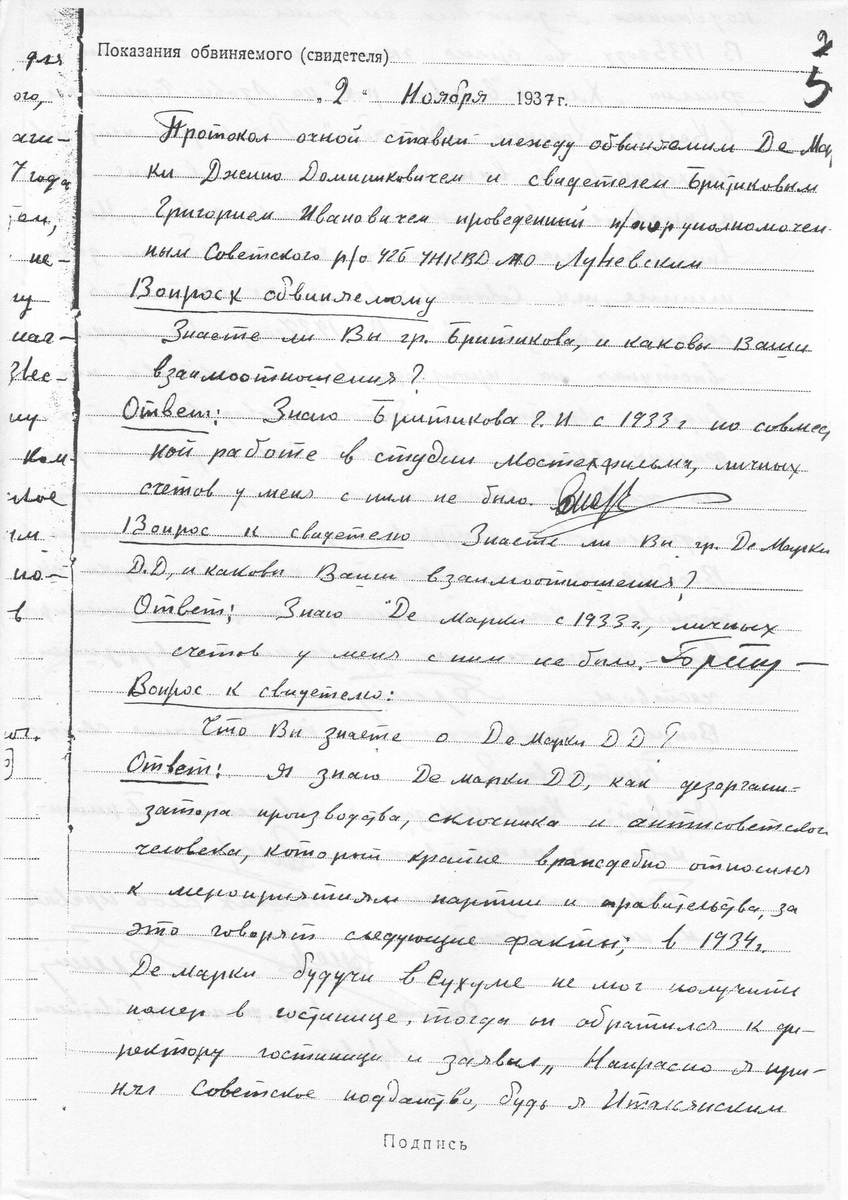 2
5
Показания обвиняемого (свидетеля)
"2" Ноября 1937 г.
Протокол очной ставки между обвиняемым Де Мар
ки Джино Доминиковичем и свидетелем Бритиковым
Григорием Ивановичем проведенный упол­номочен-
ным Советского р/о УГБ УНКВД МО Луневским
Вопрос к обвиняемому
Знаете ли Вы гр. Бритикова, и каковы Ваши
взаимоотношения?
Ответ: Знаю Бритикова Г. И с 1933 г по совмест
ной работе в студии Мостехфильм, личных
счетов у меня с ним не было.
Вопрос к свидетелю Знаете ли Вы гр. Де Марки
Д.Д, и каковы Ваши взаимоотношения?
Ответ: Знаю Де Марки с 1933 г., личных
счетов у меня с ним не было. -
Вопрос к свидетелю:
Что Вы знаете о Де Марки Д Д?
Ответ: Я знаю Де Марки ДД, как дезоргани-
затора производства, склочника и антисоветского
человека, который крайне враждебно относился
к мероприятиям партии и правительства, за
это говорят следующие факты; в 1934 г.
Де Марки будучи в Сухуме не мог получить
номер в гостинице, тогда он обратился к ди-
ректору гостиницы и заявил „ Напрасно я при-
нял Советское подданство, будь я Итальянским
Подпись
для
ого,
7 года
не-
в